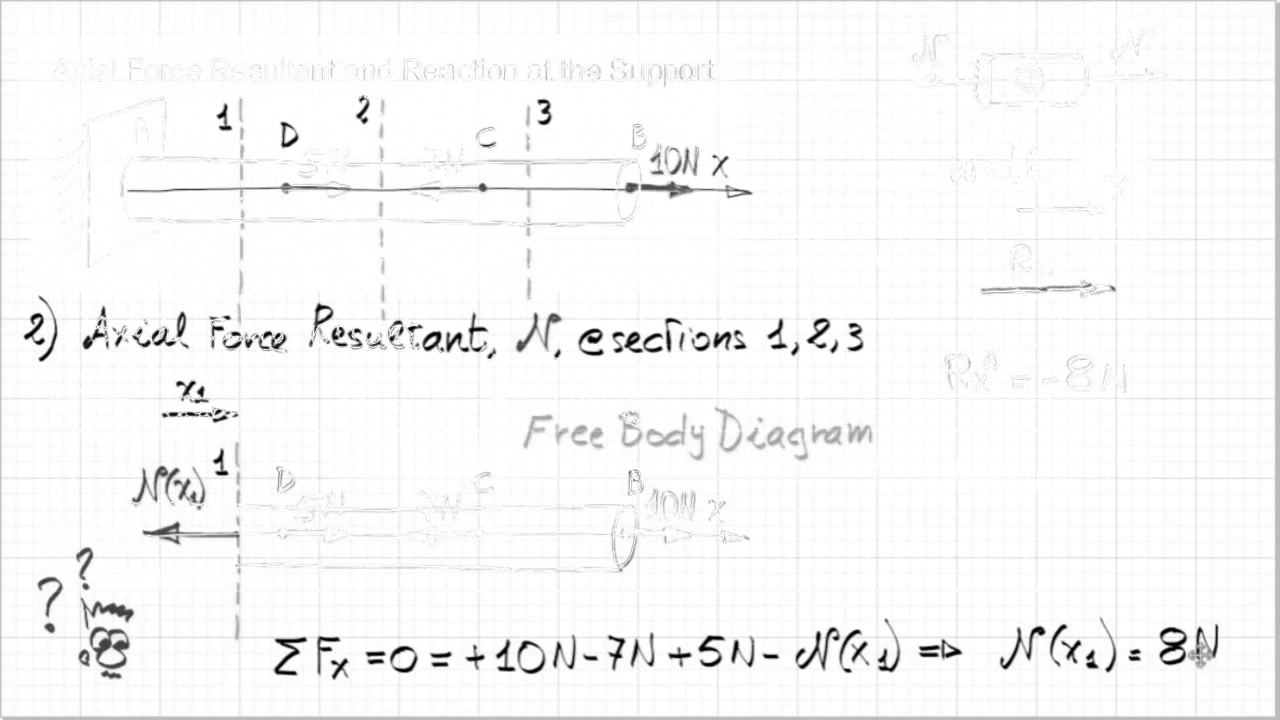 Axial Force Resultant and Reaction at the Support
N N
1 2 3
A D C B
5N 7N 10N x
x
Rx
2) Axial Force Resultant, N, @sections 1,2,3
RxA = -8N
x1
Free Body Diagram
N(x1) 1 D C B
5N 7N 10N x
? ?
ΣFx = 0 = +10N-7N+5N- N(x1) => N(x1) = 8N